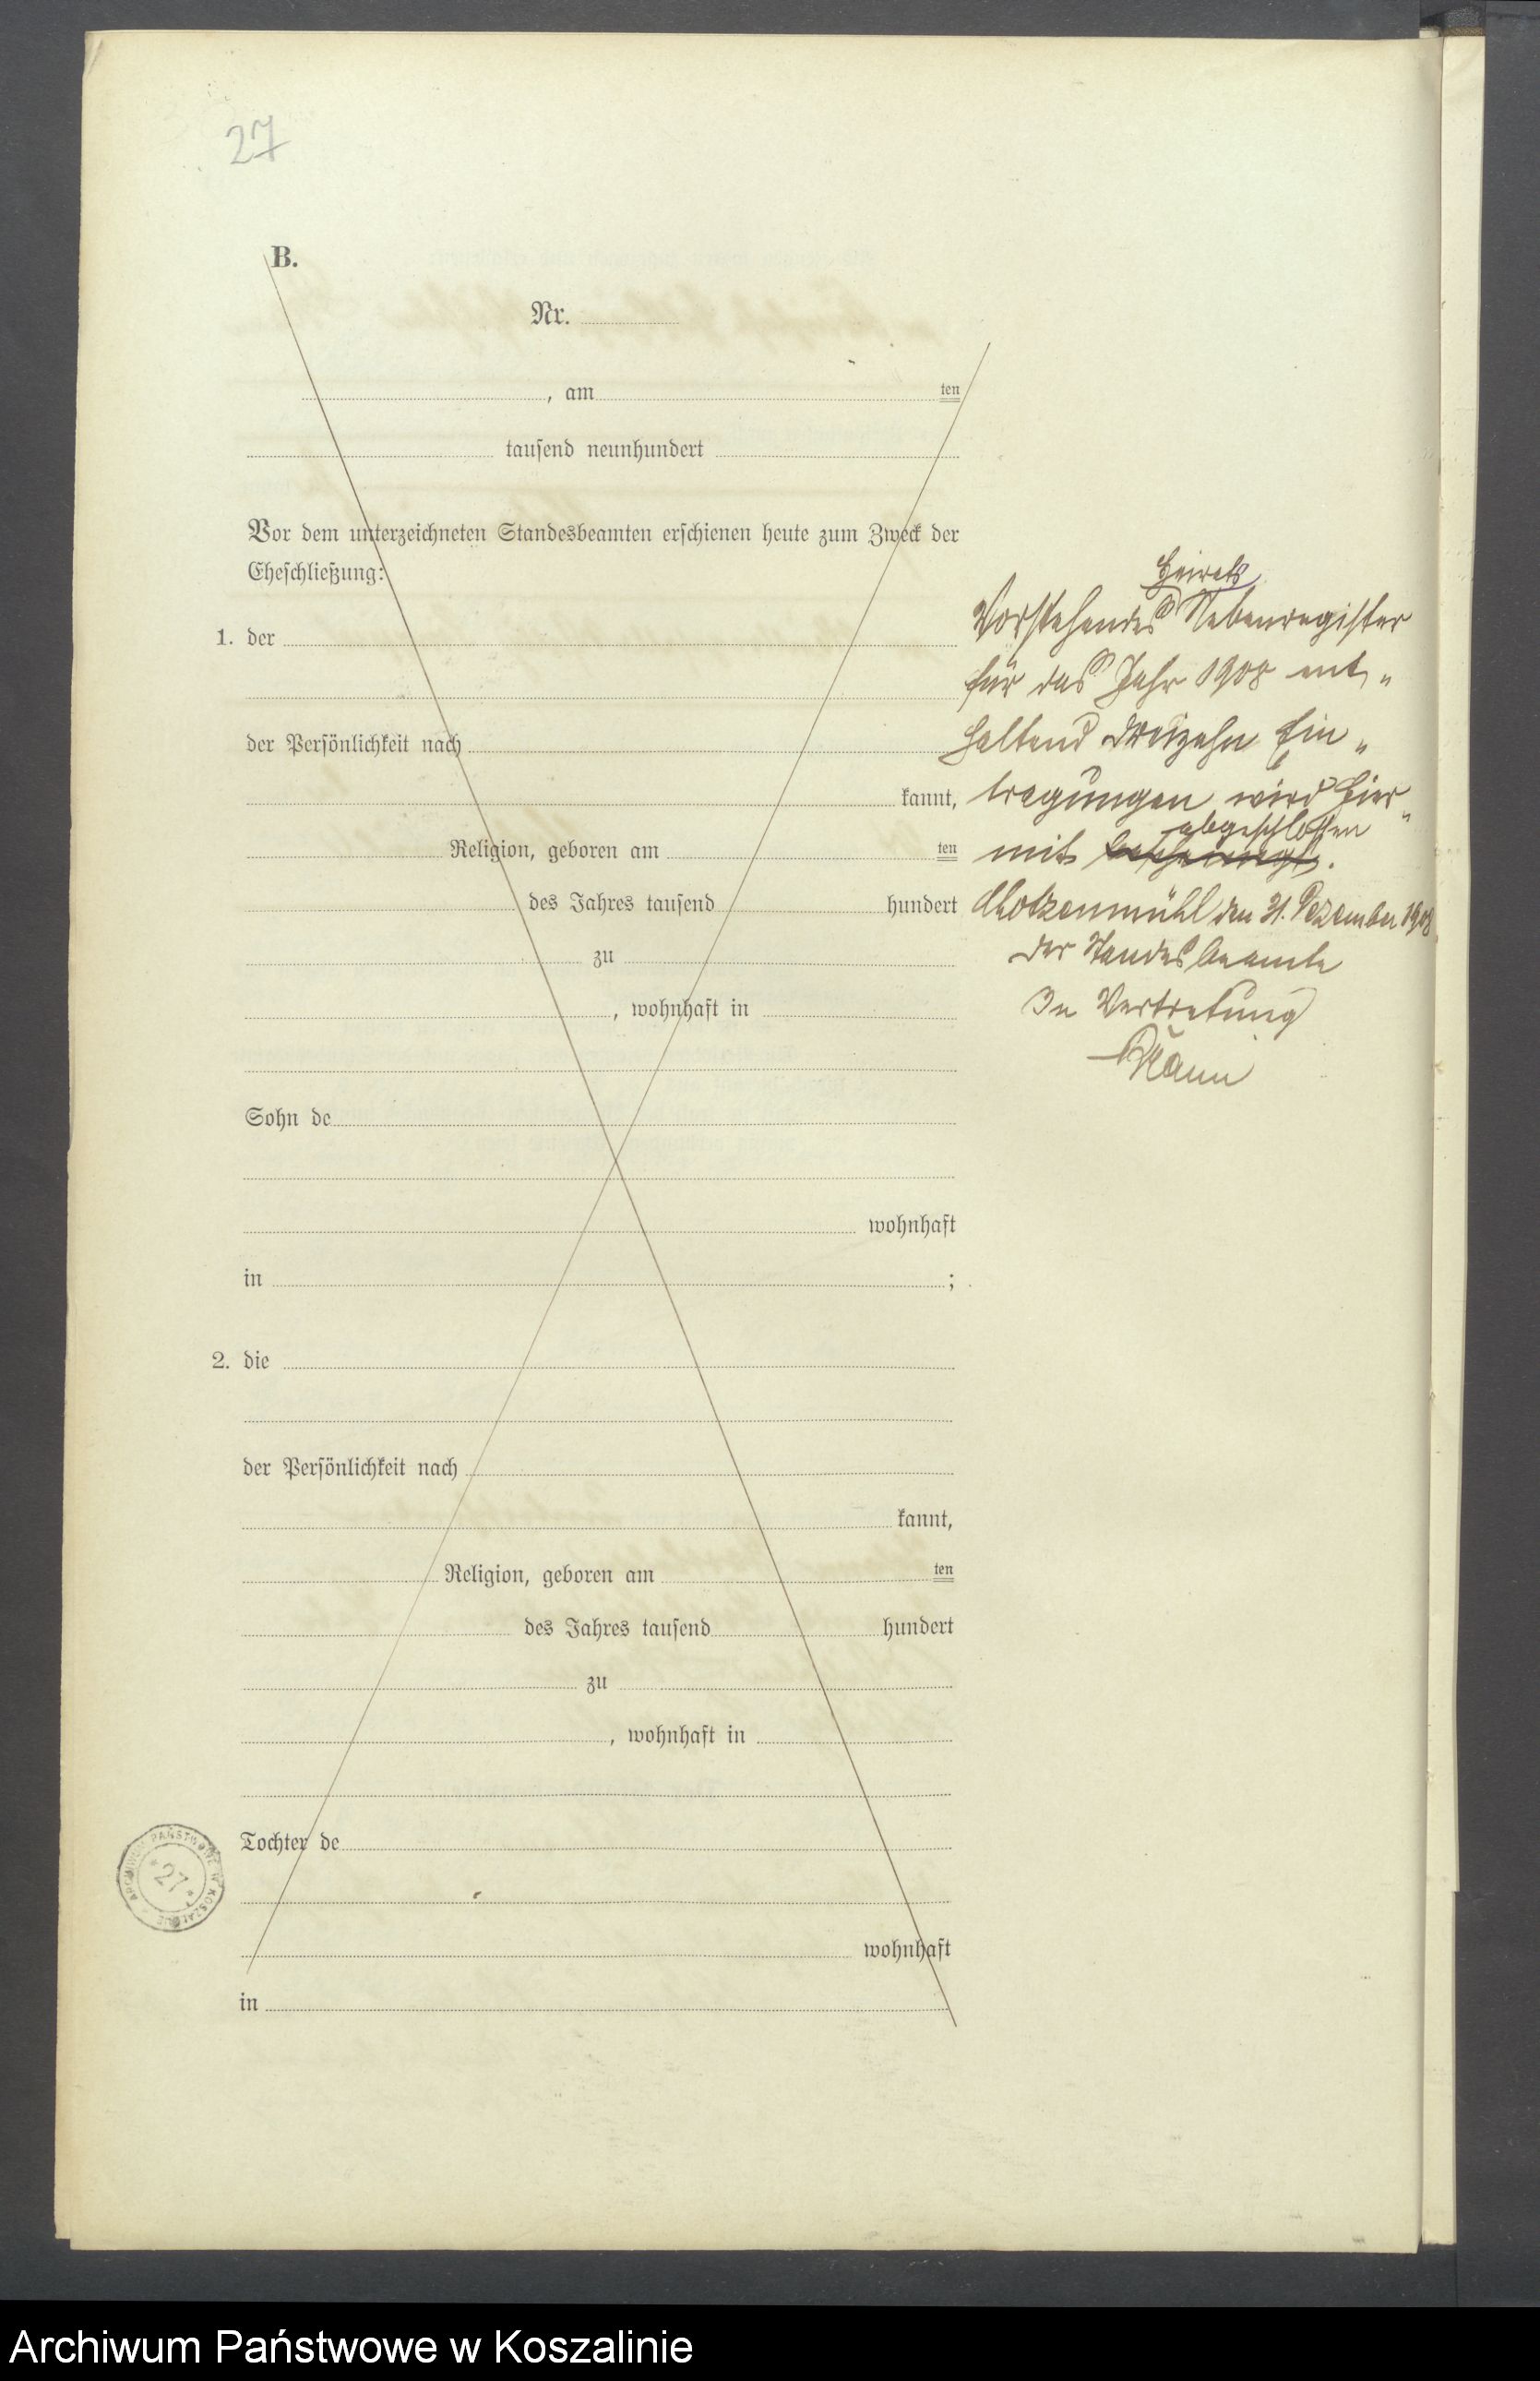 27
B.
Nr.
, am ten
tausend neunhundert
Vor dem unterzeichneten Standesbeamten erschienen heute zum Zweck der
Eheschließung:
1. der
der Persönlichkeit nach
kannt,
Religion, geboren am ten
des Jahres tausend hundert
zu
, wohnhaft in
Sohn de
wohnhaft
in ;
2. die
der Persönlichkeit nach
kannt,
Religion, geboren am ten
des Jahres tausend hundert
zu
, wohnhaft in
Tochter de
wohnhaft
in
Heirats
Vorstehendes Nebenregister
für das Jahr 1908 ent„
haltend dreizehn Ein„
tragungen wird hier„
abgeschlossen
mit bescheinigt.
den 31. Dezember 1908
Der Standesbeamte
In Vertretung
ARCHIWUM PAŃSTWOWE W KOSZALINIE
* 27 *
Archiwum Państwowe w Koszalinie